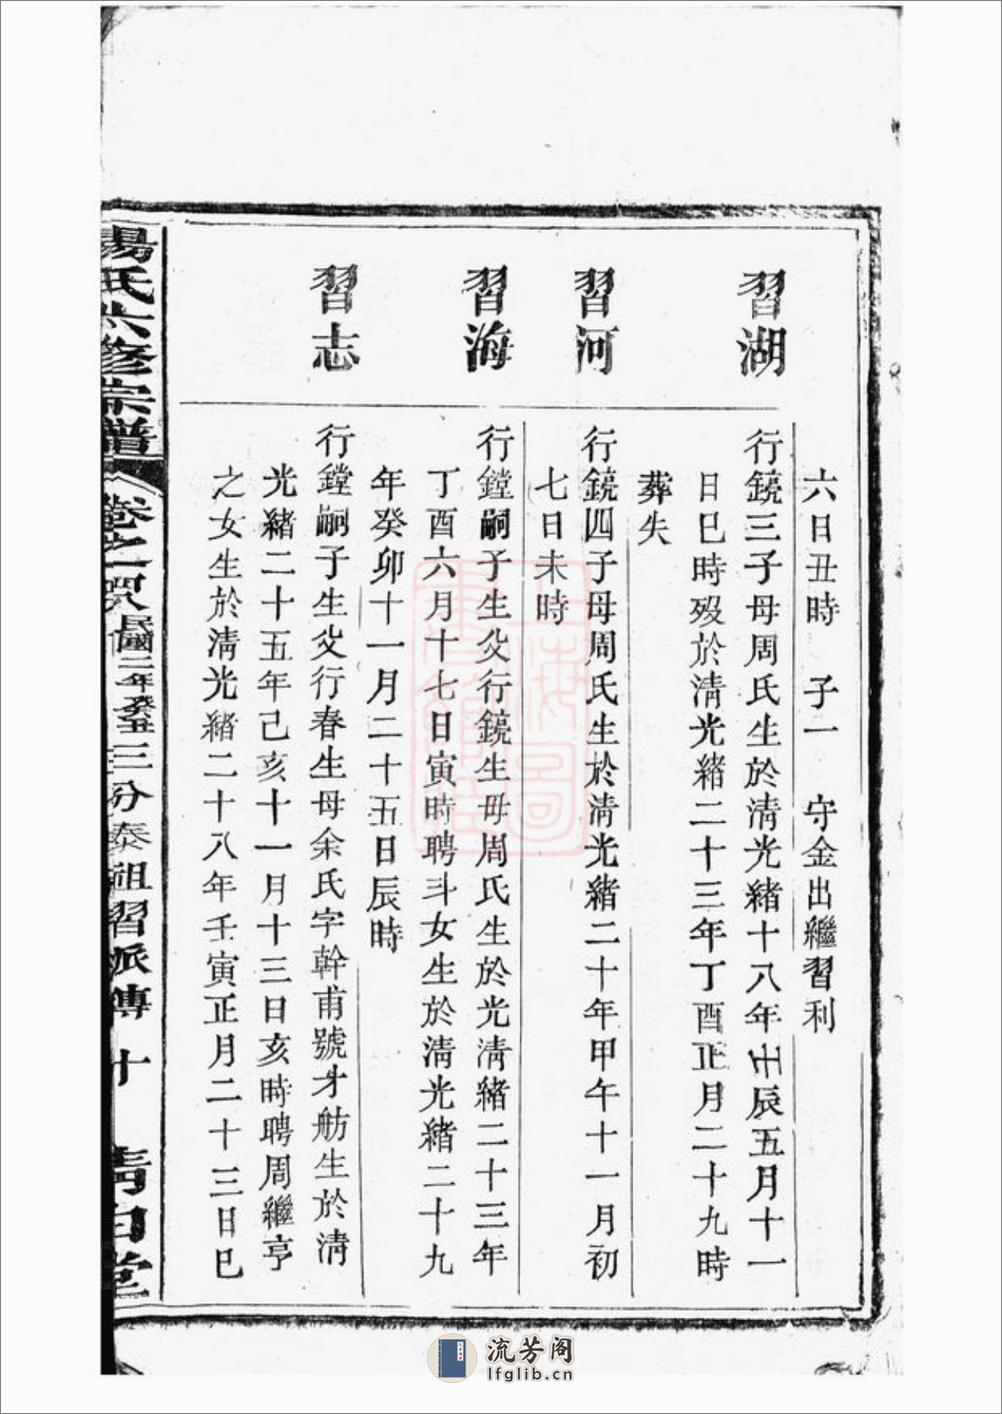 六日丑時　子一　守金出繼習利
習湖
行鏡三子母周氏生於清光緒十八年壬辰五月十一
日巳時歿於淸光緒二十三年丁酉正月二十九時
葬失
習河
行鏡四子母周氏生於淸光緒二十年甲午十一月初
七日未時
習海
行鏜嗣子生父行鏡生毋周氏生於光淸緒二十三年
丁酉六月十七日寅時聘斗女生於淸光緒二十九
年癸卯十一月二十五日辰時
習志
行鏜嗣子生父行春生母余氏字幹甫號才舫生於淸
光緒二十五年己亥十一月十三日亥時聘周繼亨
之女生於淸光緒二十八年壬寅正月二十三日巳
楊氏六修宗譜　卷之一　民國二年癸丑　三分泰祖習派傳　十　淸白堂
流芳阁
lfglib.cn